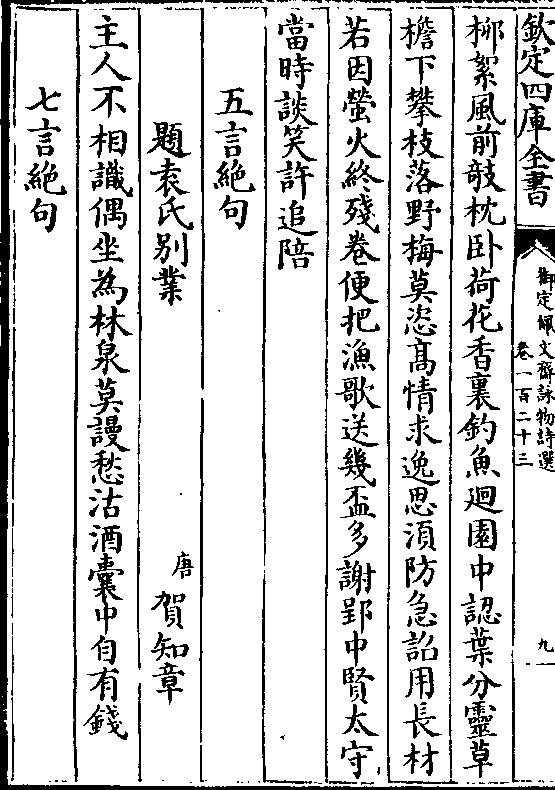 欽定四庫全書
御定佩文齋詠物詩選
卷一百二十三
九
柳絮風前敧枕卧荷花香裏釣魚廻園中認葉分靈草
檐下攀枝落野梅莫恣高情求逸思湏防急詔用長材
若因螢火終殘卷便把漁歌送幾盃多謝郢中賢太守
當時談笑許追陪
五言絶句
題袁氏别業
唐 賀知章
主人不相識偶坐為林泉莫謾愁沽酒囊中自有錢
七言絶句